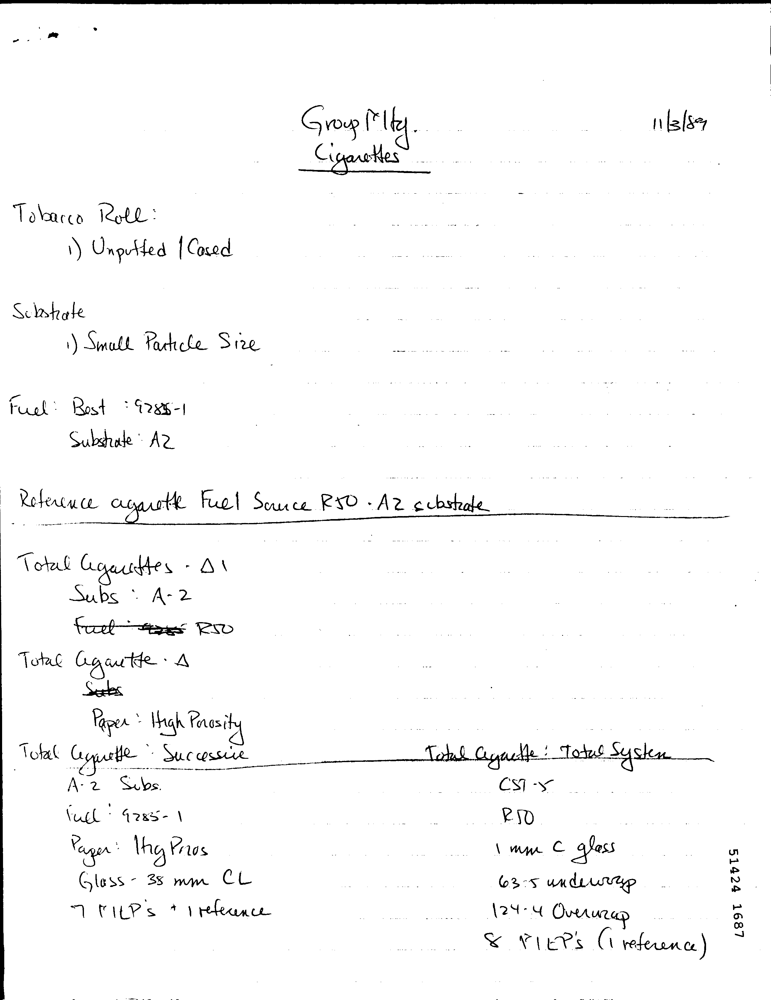 Group Mtg. 11/3/89
Cigarettes
Tobacco Roll:
1) Unpuffed / Cased
Substrate
1) Small Particle Size
Fuel: Best : 9285-1
Substrate: A2
Reference cigarette Fuel Source R50 - A2 substrate
Total Cigarettes - Δ 1
Subs : A-2
Fuel : R50
Total Cigarette - Δ
Subs
Paper : High Porosity
Total Cigarette : Successive
A-2 Subs.
Fuel : 9285-1
Paper : Hig Poros
Glass - 38 mm CL
7 PILP's + 1 reference
Total Cigarette : Total System
CST-5
R50
1 mm C glass
63-5 underwrap
124-4 Overwrap
8 (1 reference)
51424 1687